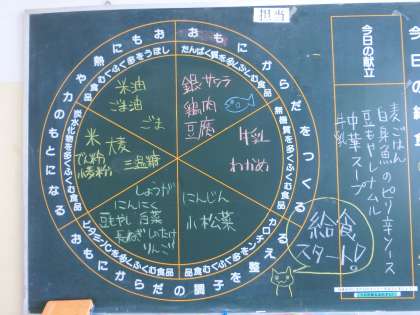 おもにからだをつくる
たんぱく質を多くふくむ食品
無機質を多くふくむ食品
カロテンを多くふくむ食品
ビタミンCを多くふくむ食品
おもにからだの調子を整える
炭水化物を多くふくむ食品
脂ぼうを多くふくむ食品
おもに熱や力のもとになる
銀サワラ
鶏肉
豆腐
牛乳
わかめ
にんじん
小松菜
しょうが
にんにく
豆もやし 白菜
長ねぎ しいたけ
りんご
米 大麦
でん粉 三温糖
小麦粉
米油
ごま油
ごま
給食
スタート!
今日の献立
麦ごはん
白身魚のピリ辛ソース
豆もやしナムル
中華スープ
牛乳